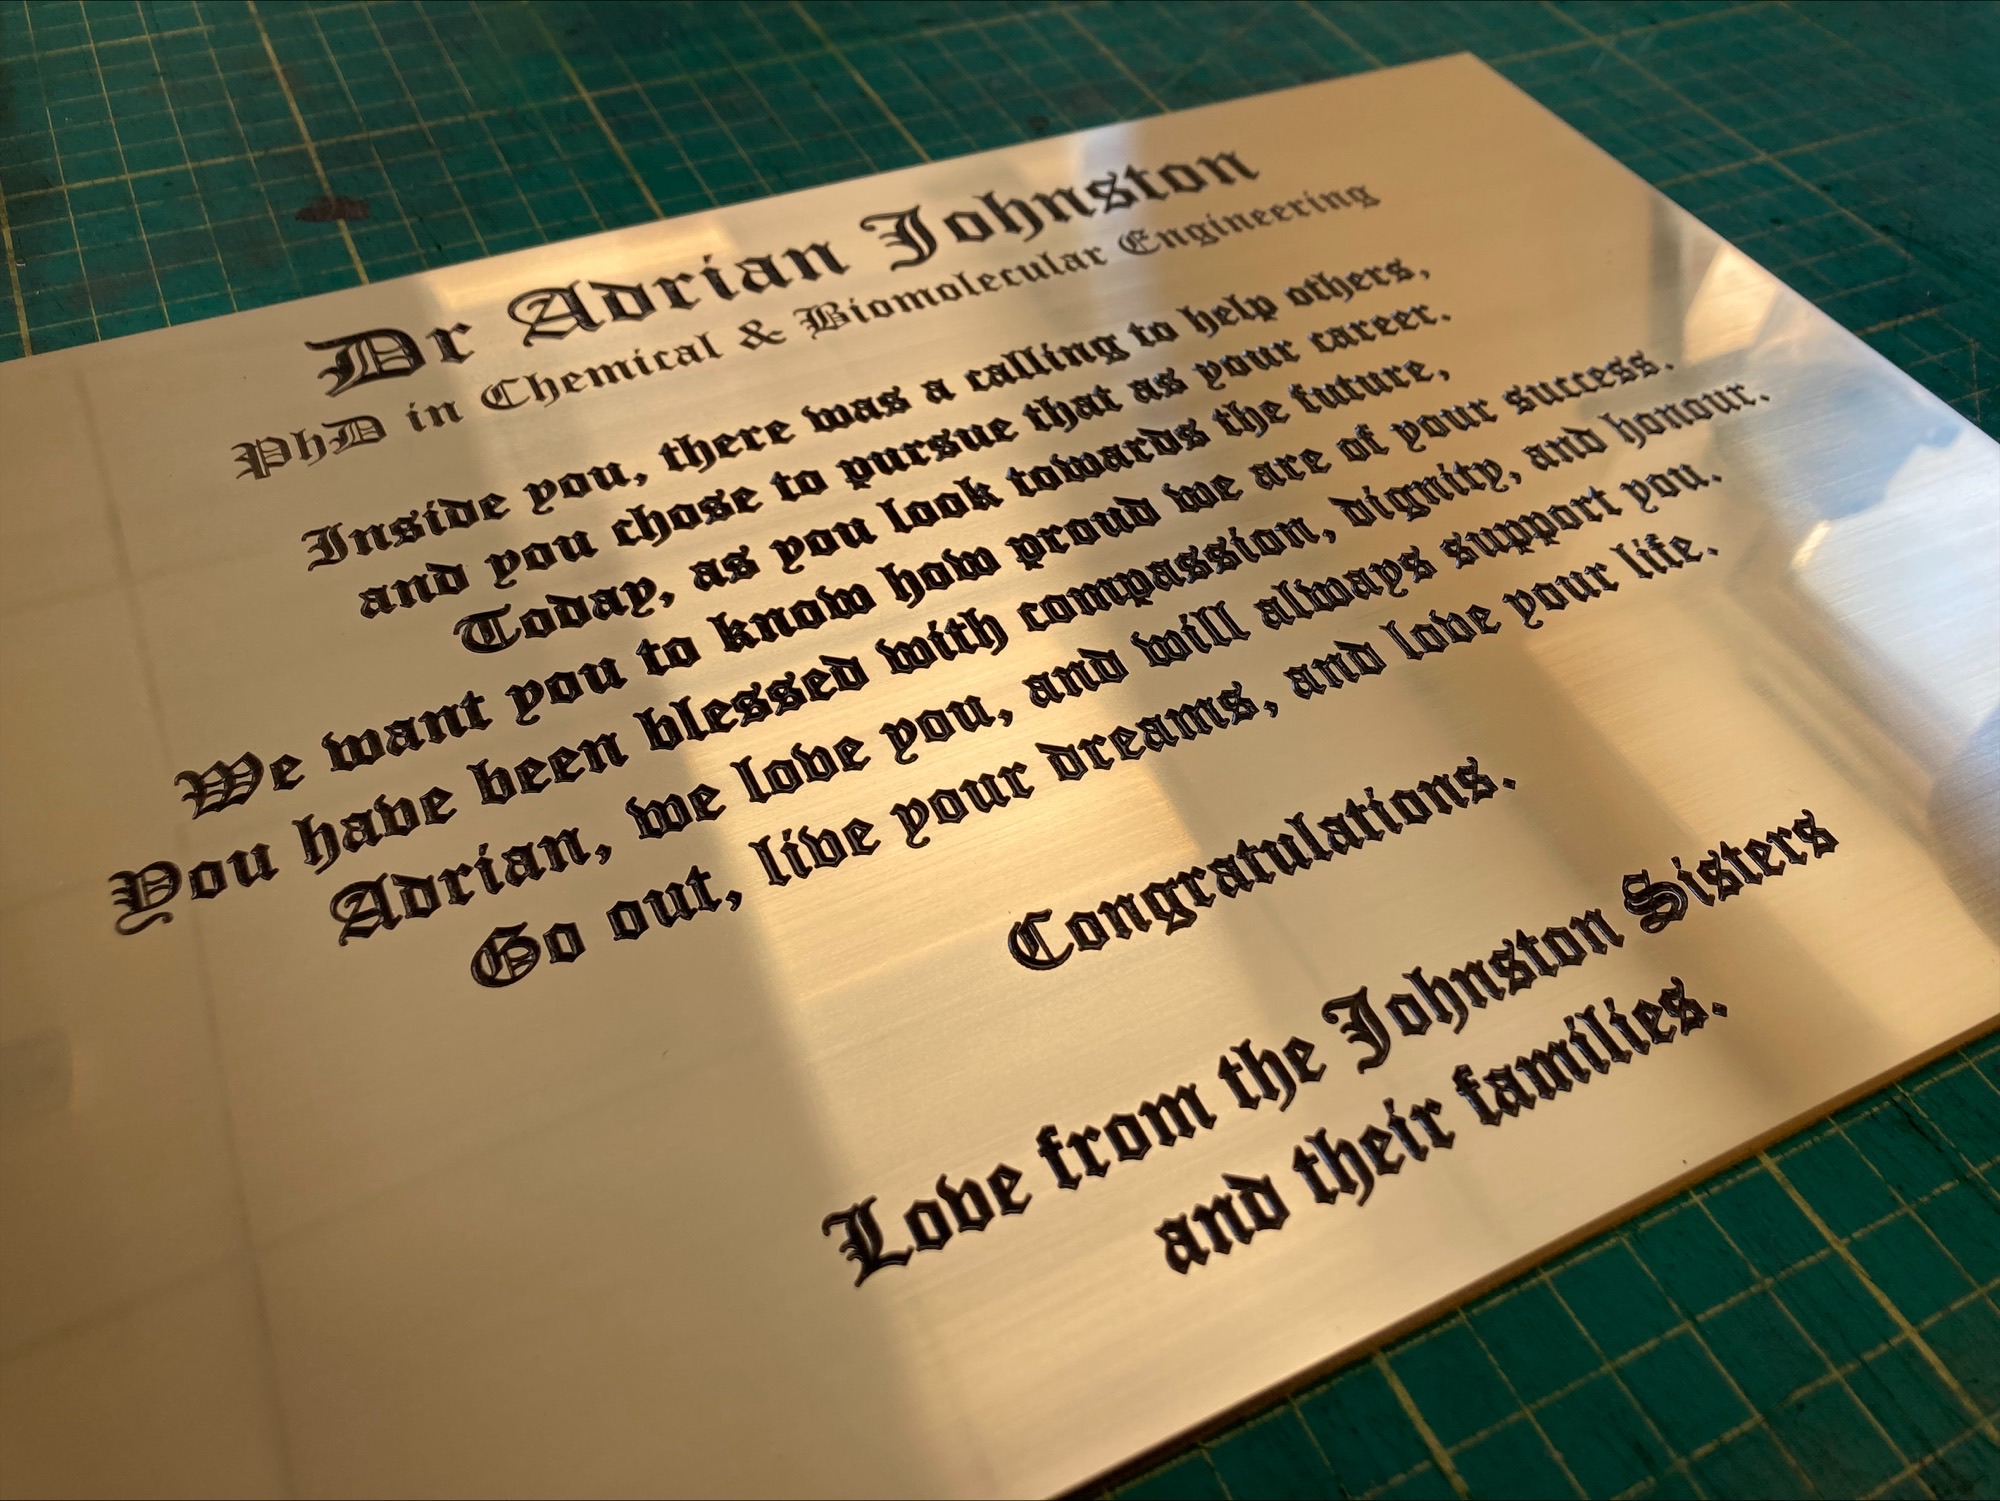 Dr Adrian Johnston
PhD in Chemical & Biomolecular Engineering
Inside you, there was a calling to help others,
and you chose to pursue that as your career.
Today, as you look towards the future,
We want you to know how proud we are of your success.
You have been blessed with compassion, dignity, and honour.
Adrian, we love you, and will always support you.
Go out, live your dreams, and love your life.
Congratulations.
Love from the Johnston Sisters
and their families.